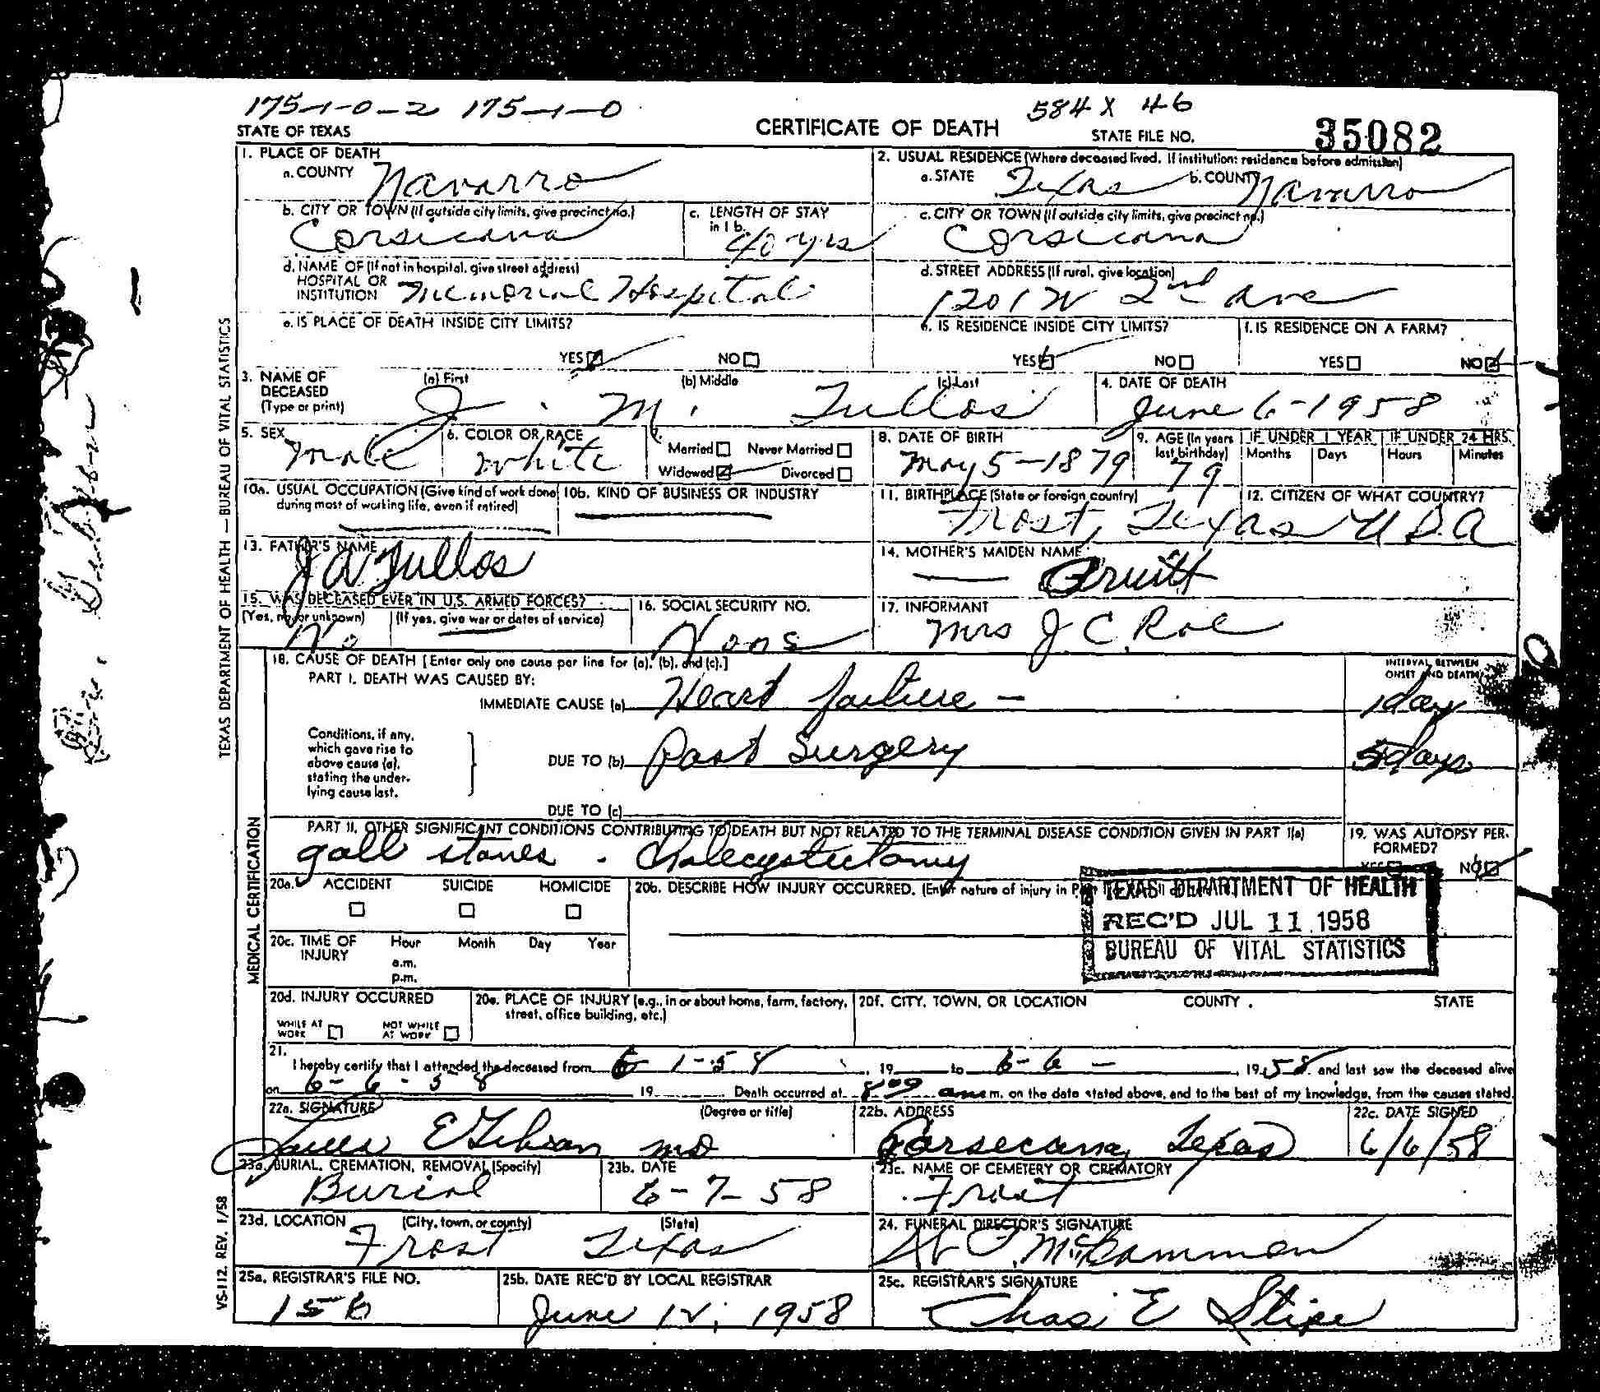 175-1-0-2 175-1-0 584 X 46
STATE OF TEXAS CERTIFICATE OF DEATH STATE FILE NO. 35082
1. PLACE OF DEATH 2. USUAL RESIDENCE (Where deceased lived. If institution: residence before admission)
a. COUNTY Navarro a. STATE Texas b. COUNTY Navarro
b. CITY OR TOWN (If outside city limits, give precinct no.) c. LENGTH OF STAY in 1 b. c. CITY OR TOWN (If outside city limits, give precinct no.)
Corsicana 40 yrs Corsicana
d. NAME OF (If not in hospital, give street address) HOSPITAL OR INSTITUTION Memorial Hospital d. STREET ADDRESS (If rural, give location) 1201 W 2nd Ave
e. IS PLACE OF DEATH INSIDE CITY LIMITS? e. IS RESIDENCE INSIDE CITY LIMITS? f. IS RESIDENCE ON A FARM?
YES NO YES NO YES NO
3. NAME OF DECEASED (Type or print) (a) First (b) Middle (c) Last 4. DATE OF DEATH
J. M. Tullos June 6-1958
5. SEX 6. COLOR OR RACE 7. Married Never Married 8. DATE OF BIRTH 9. AGE (In years last birthday) IF UNDER 1 YEAR IF UNDER 24 HRS.
Male White Widowed Divorced May 5-1879 79 Months Days Hours Minutes
10a. USUAL OCCUPATION (Give kind of work done during most of working life, even if retired) 10b. KIND OF BUSINESS OR INDUSTRY 11. BIRTHPLACE (State or foreign country) 12. CITIZEN OF WHAT COUNTRY?
Frost, Texas USA
13. FATHER'S NAME 14. MOTHER'S MAIDEN NAME
J A Tullos Pruitt
15. WAS DECEASED EVER IN U.S. ARMED FORCES? 16. SOCIAL SECURITY NO. 17. INFORMANT
(Yes, no, or unknown) (If yes, give war or dates of service)
No None Mrs J. C. Roe
18. CAUSE OF DEATH [Enter only one cause per line for (a), (b), and (c).] INTERVAL BETWEEN ONSET AND DEATH
PART I. DEATH WAS CAUSED BY:
IMMEDIATE CAUSE (a) Heart failure - 1 day
Conditions, if any, which gave rise to above cause (a), stating the underlying cause last.
DUE TO (b) Post Surgery 5 days
DUE TO (c)
PART II. OTHER SIGNIFICANT CONDITIONS CONTRIBUTING TO DEATH BUT NOT RELATED TO THE TERMINAL DISEASE CONDITION GIVEN IN PART I(a) 19. WAS AUTOPSY PERFORMED?
gall stones. Cholecystectomy YES NO
20a. ACCIDENT SUICIDE HOMICIDE 20b. DESCRIBE HOW INJURY OCCURRED. (Enter nature of injury in
TEXAS DEPARTMENT OF HEALTH
REC'D JUL 11 1958
BUREAU OF VITAL STATISTICS
20c. TIME OF INJURY Hour Month Day Year
a.m.
p.m.
20d. INJURY OCCURRED 20e. PLACE OF INJURY (e.g., in or about home, farm, factory, street, office building, etc.) 20f. CITY, TOWN, OR LOCATION COUNTY STATE
WHILE AT WORK NOT WHILE AT WORK
21. I hereby certify that I attended the deceased from 6-1-58, 19 to 6-6-, 1958 and last saw the deceased alive
on 6-6-58 19 Death occurred at 8:00 a m. on the date stated above, and to the best of my knowledge, from the causes stated.
22a. SIGNATURE (Degree or title) 22b. ADDRESS 22c. DATE SIGNED
E Gibson MD Corsicana, Texas 6/6/58
23a. BURIAL, CREMATION, REMOVAL (Specify) 23b. DATE 23c. NAME OF CEMETERY OR CREMATORY
Burial 6-7-58 Frost
23d. LOCATION (City, town, or county) (State) 24. FUNERAL DIRECTOR'S SIGNATURE
Frost Texas McCammon
25a. REGISTRAR'S FILE NO. 25b. DATE REC'D BY LOCAL REGISTRAR 25c. REGISTRAR'S SIGNATURE
156 June 12, 1958 Chas E Stipe
TEXAS DEPARTMENT OF HEALTH — BUREAU OF VITAL STATISTICS
MEDICAL CERTIFICATION
VS-112. REV. 1/58